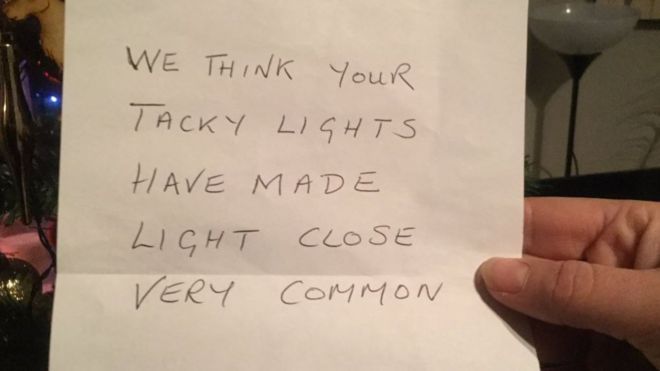 WE THINK YOUR
TACKY LIGHTS
HAVE MADE
LIGHT CLOSE
VERY COMMON